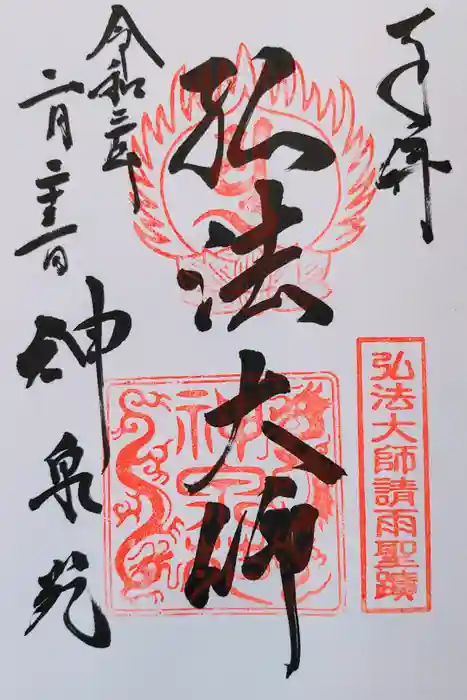 奉拝
弘法大師請雨聖蹟
弘法大師
令和三年
二月二十三日
神泉苑